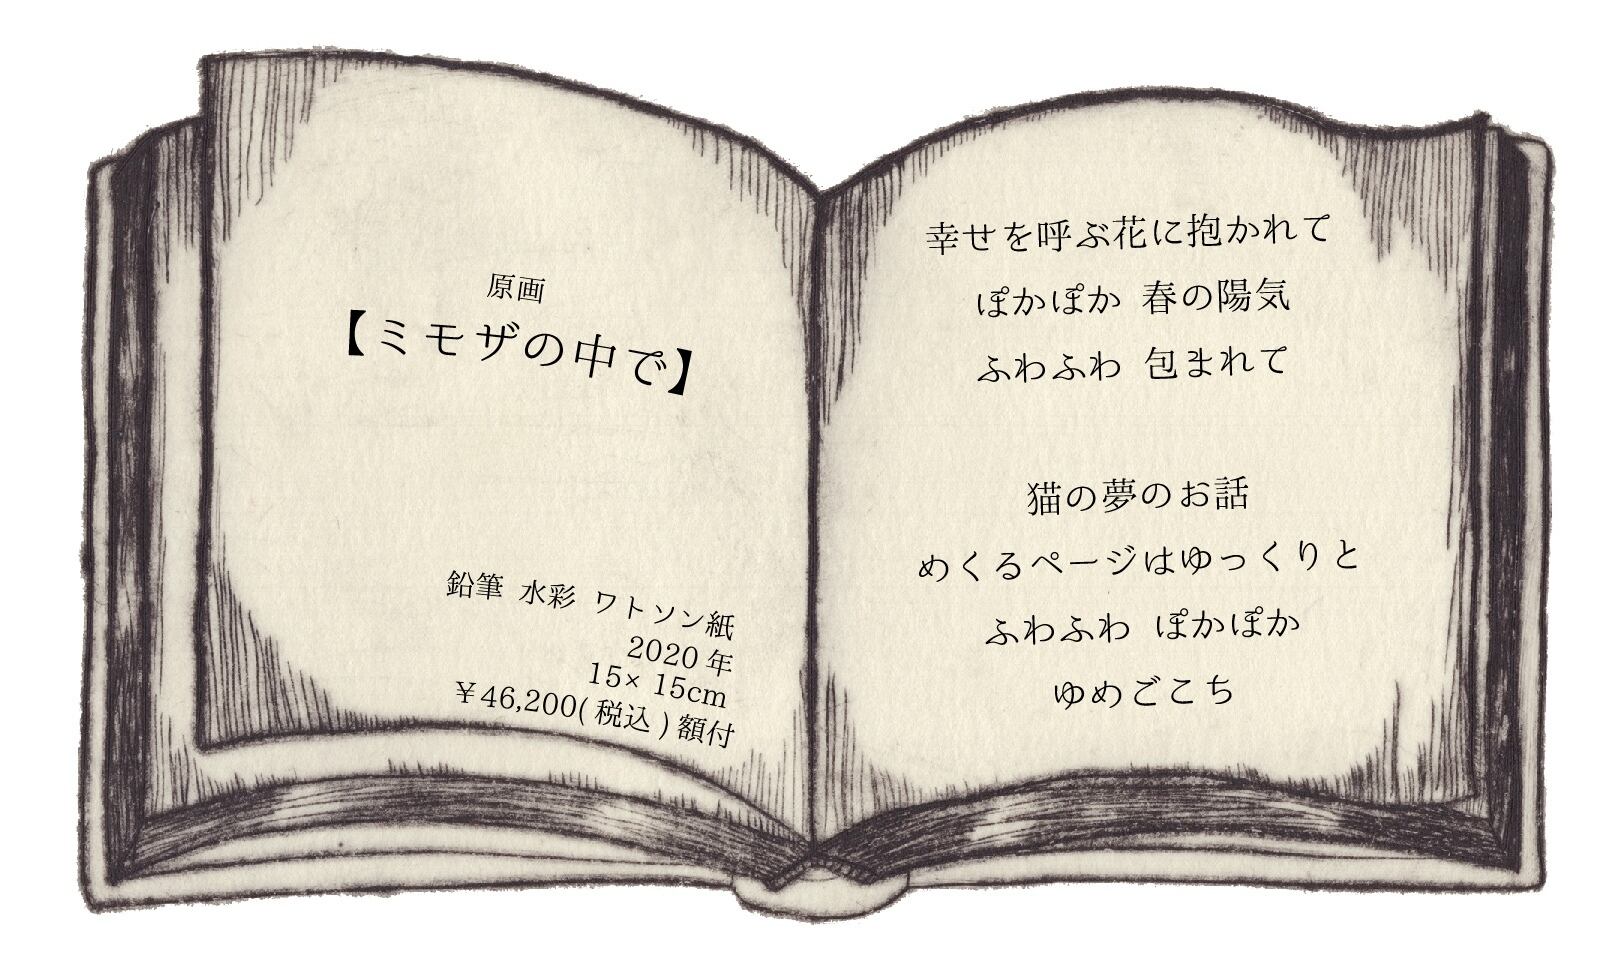 原画
【ミモザの中で】
鉛筆 水彩 ワトソン紙
2020 年
15× 15cm
￥46,200( 税込 ) 額付
幸せを呼ぶ花に抱かれて
ぽかぽか 春の陽気
ふわふわ 包まれて
猫の夢のお話
めくるページはゆっくりと
ふわふわ ぽかぽか
ゆめごこち